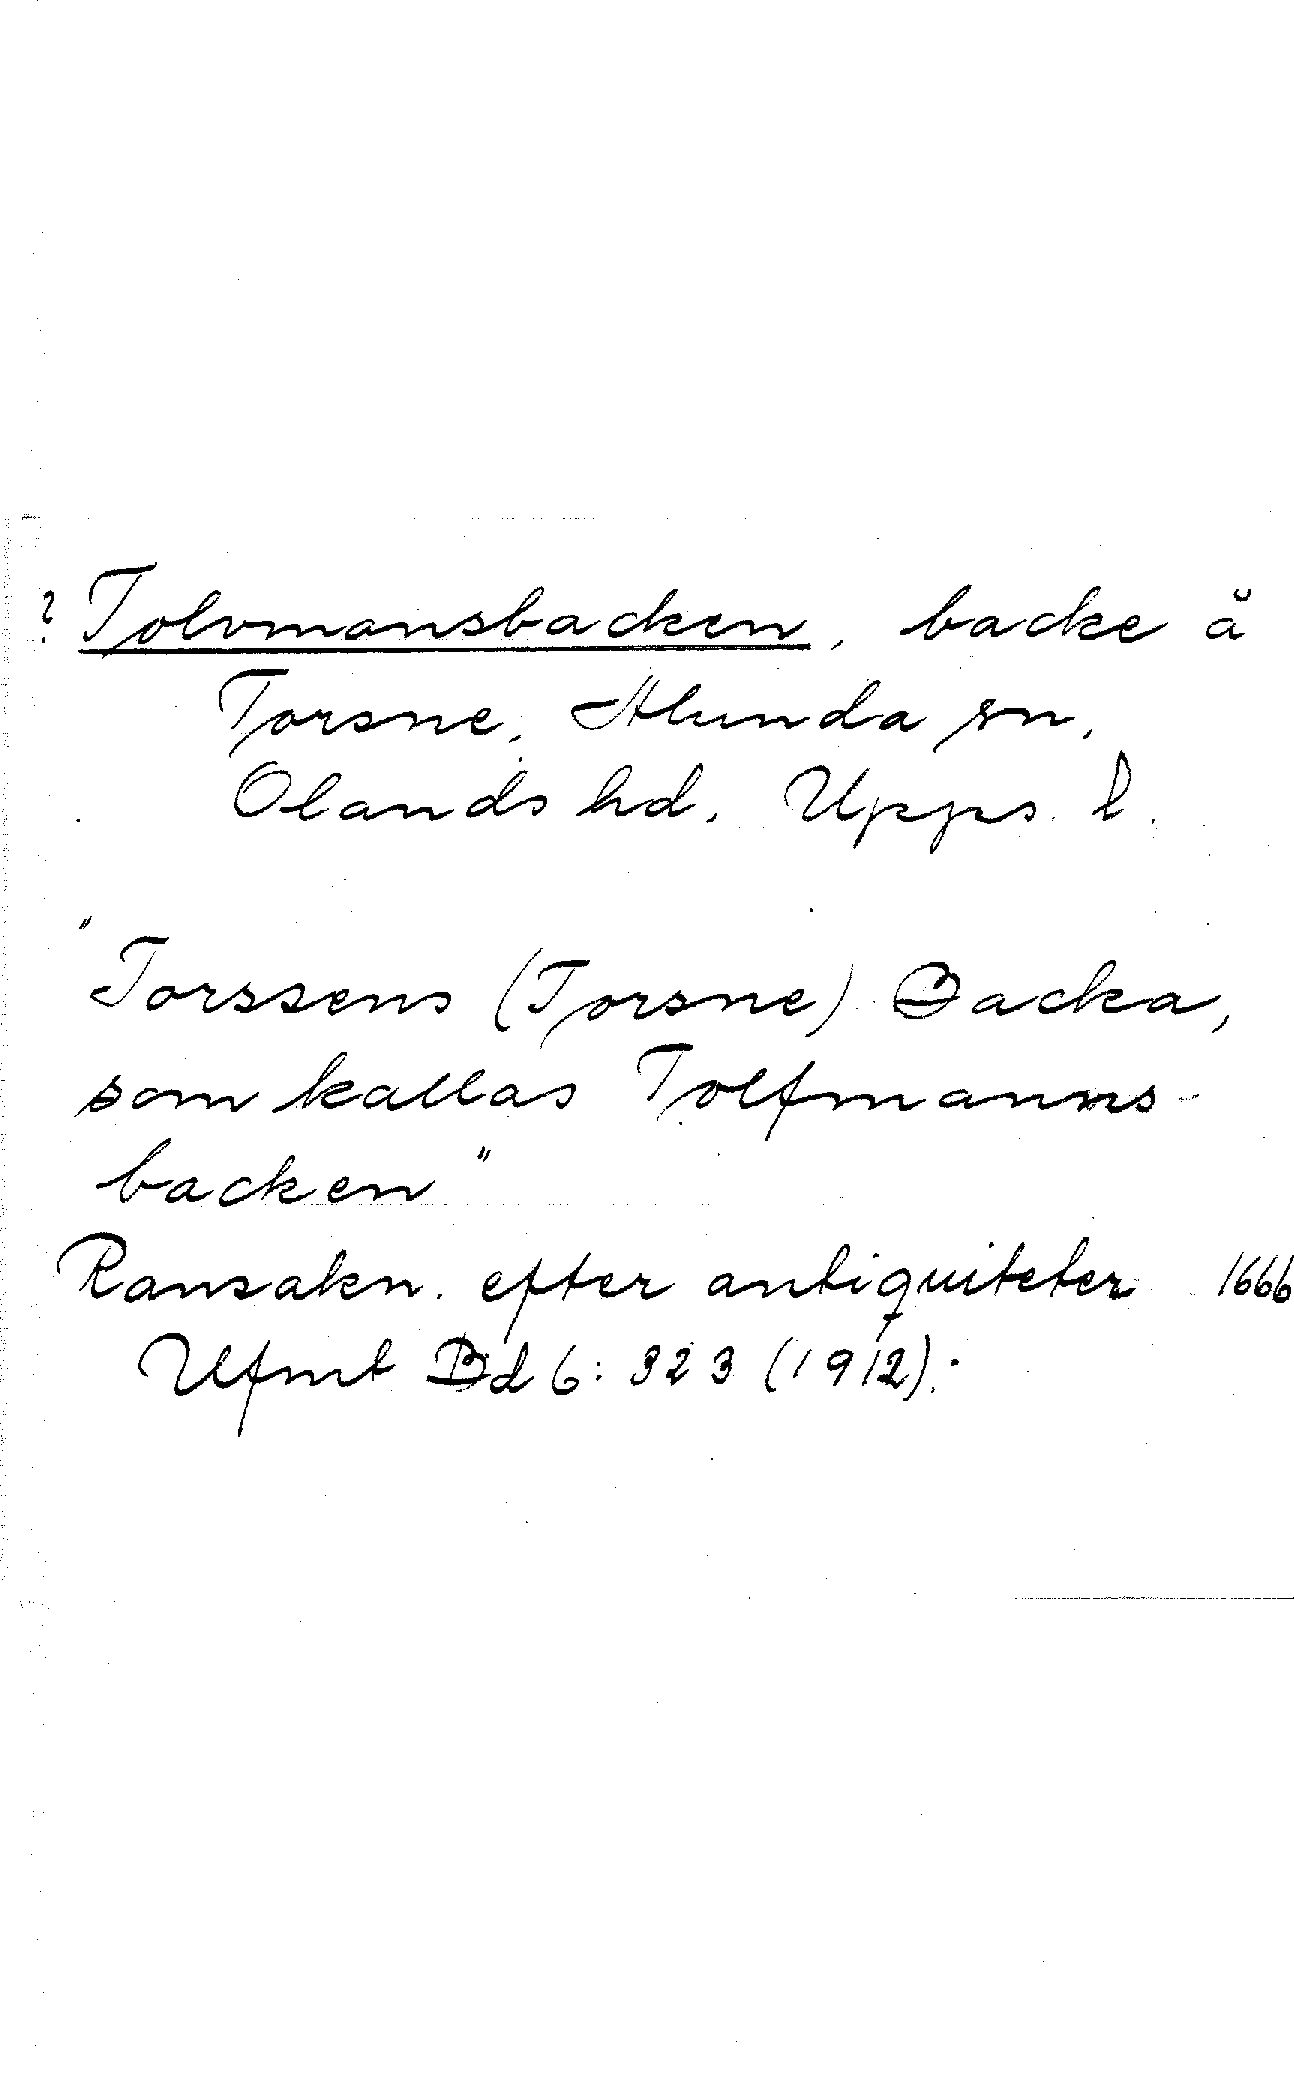 ? Tolvmansbacken, backe å
Torsne, Alunda sn,
Olands hd, Upps. l.
"Torssens (Torsne) Backa,
som kallas Tolfmanns-
backen"
Ransakn. efter antiquiteter 1666
Ufmt Bd 6: 323 (1912).